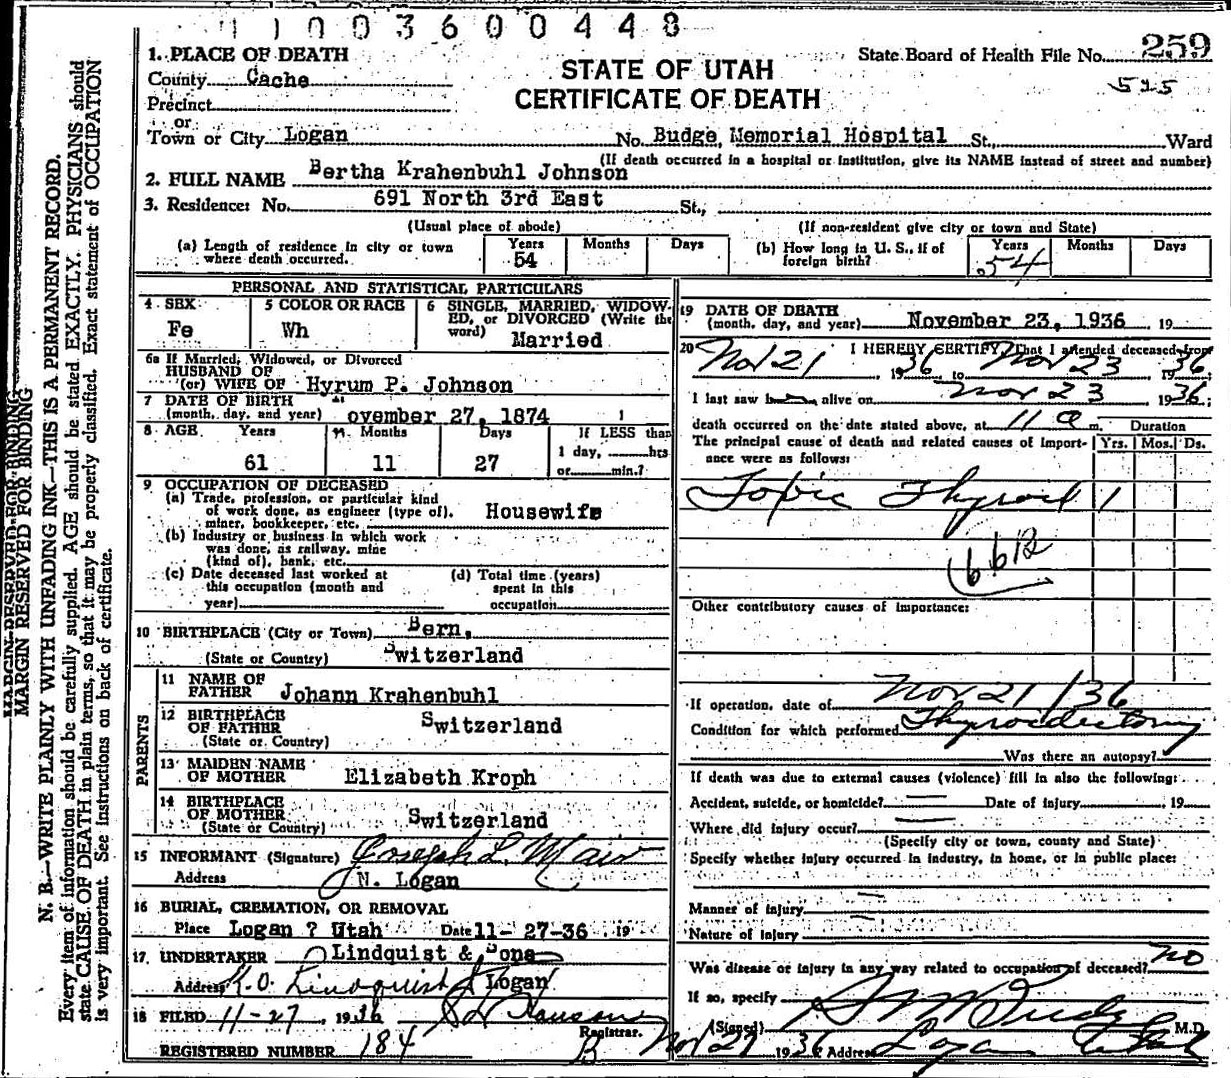 1 1 0 0 3 6 0 0 4 4 8
1. PLACE OF DEATH
County Cache
Precinct
or
Town or City Logan
STATE OF UTAH
CERTIFICATE OF DEATH
State Board of Health File No. 259
525
No. Budge Memorial Hospital St., Ward
(If death occurred in a hospital or institution, give its NAME instead of street and number)
2. FULL NAME Bertha Krahenbuhl Johnson
3. Residence: No. 691 North 3rd East St.,
(Usual place of abode) (If non-resident give city or town and State)
(a) Length of residence in city or town where death occurred. Years 54 Months Days
(b) How long in U. S., if of foreign birth? Years 54 Months Days
PERSONAL AND STATISTICAL PARTICULARS
4 SEX Fe
5 COLOR OR RACE Wh
6 SINGLE, MARRIED, WIDOWED, or DIVORCED (Write the word) Married
6a If Married, Widowed, or Divorced
HUSBAND OF
(or) WIFE OF Hyrum P. Johnson
7 DATE OF BIRTH
(month, day, and year) ovember 27, 1874
8 AGE Years 61 Months 11 Days 27 If LESS than 1 day, hrs or min.?
9 OCCUPATION OF DECEASED
(a) Trade, profession, or particular kind of work done, as engineer (type of), miner, bookkeeper, etc. Housewife
(b) Industry or business in which work was done, as railway, mine (kind of), bank, etc.
(c) Date deceased last worked at this occupation (month and year)
(d) Total time (years) spent in this occupation
10 BIRTHPLACE (City or Town) Bern,
(State or Country) Switzerland
PARENTS
11 NAME OF FATHER Johann Krahenbuhl
12 BIRTHPLACE OF FATHER Switzerland
(State or Country)
13 MAIDEN NAME OF MOTHER Elizabeth Kroph
14 BIRTHPLACE OF MOTHER
(State or Country) Switzerland
15 INFORMANT (Signature) Joseph L. Mair
Address N. Logan
16 BURIAL, CREMATION, OR REMOVAL
Place Logan ? Utah Date 11- 27-36 19
17 UNDERTAKER Lindquist & Sons
Address K.O. Lindquist Logan
18 FILED 11-27, 1936
Registrar.
REGISTERED NUMBER 184 B
19 DATE OF DEATH
(month, day, and year) November 23, 1936 19
20 I HEREBY CERTIFY, That I attended deceased from
Nov 21, 1936 to Nov 23 1936
I last saw h alive on Nov 23 1936;
death occurred on the date stated above, at 11 a m. Duration
The principal cause of death and related causes of importance were as follows: Yrs. Mos. Ds.
Toxic Thyroid 1
66B
Other contributory causes of importance:
If operation, date of Nov 21/36
Condition for which performed Thyroidectomy
Was there an autopsy?
If death was due to external causes (violence) fill in also the following:
Accident, suicide, or homicide? — Date of injury , 19
Where did injury occur? —
(Specify city or town, county and State)
Specify whether injury occurred in industry, in home, or in public place:
Manner of injury
Nature of injury
Was disease or injury in any way related to occupation of deceased? no
If so, specify
(Signed) M.D.
Nov 27 1936 Address Logan Utah
MARGIN RESERVED FOR BINDING
MARGIN RESERVED FOR BINDING
N. B.—WRITE PLAINLY WITH UNFADING INK—THIS IS A PERMANENT RECORD.
Every item of information should be carefully supplied. AGE should be stated EXACTLY. PHYSICIANS should
state CAUSE OF DEATH in plain terms, so that it may be properly classified. Exact statement of OCCUPATION
is very important. See instructions on back of certificate.